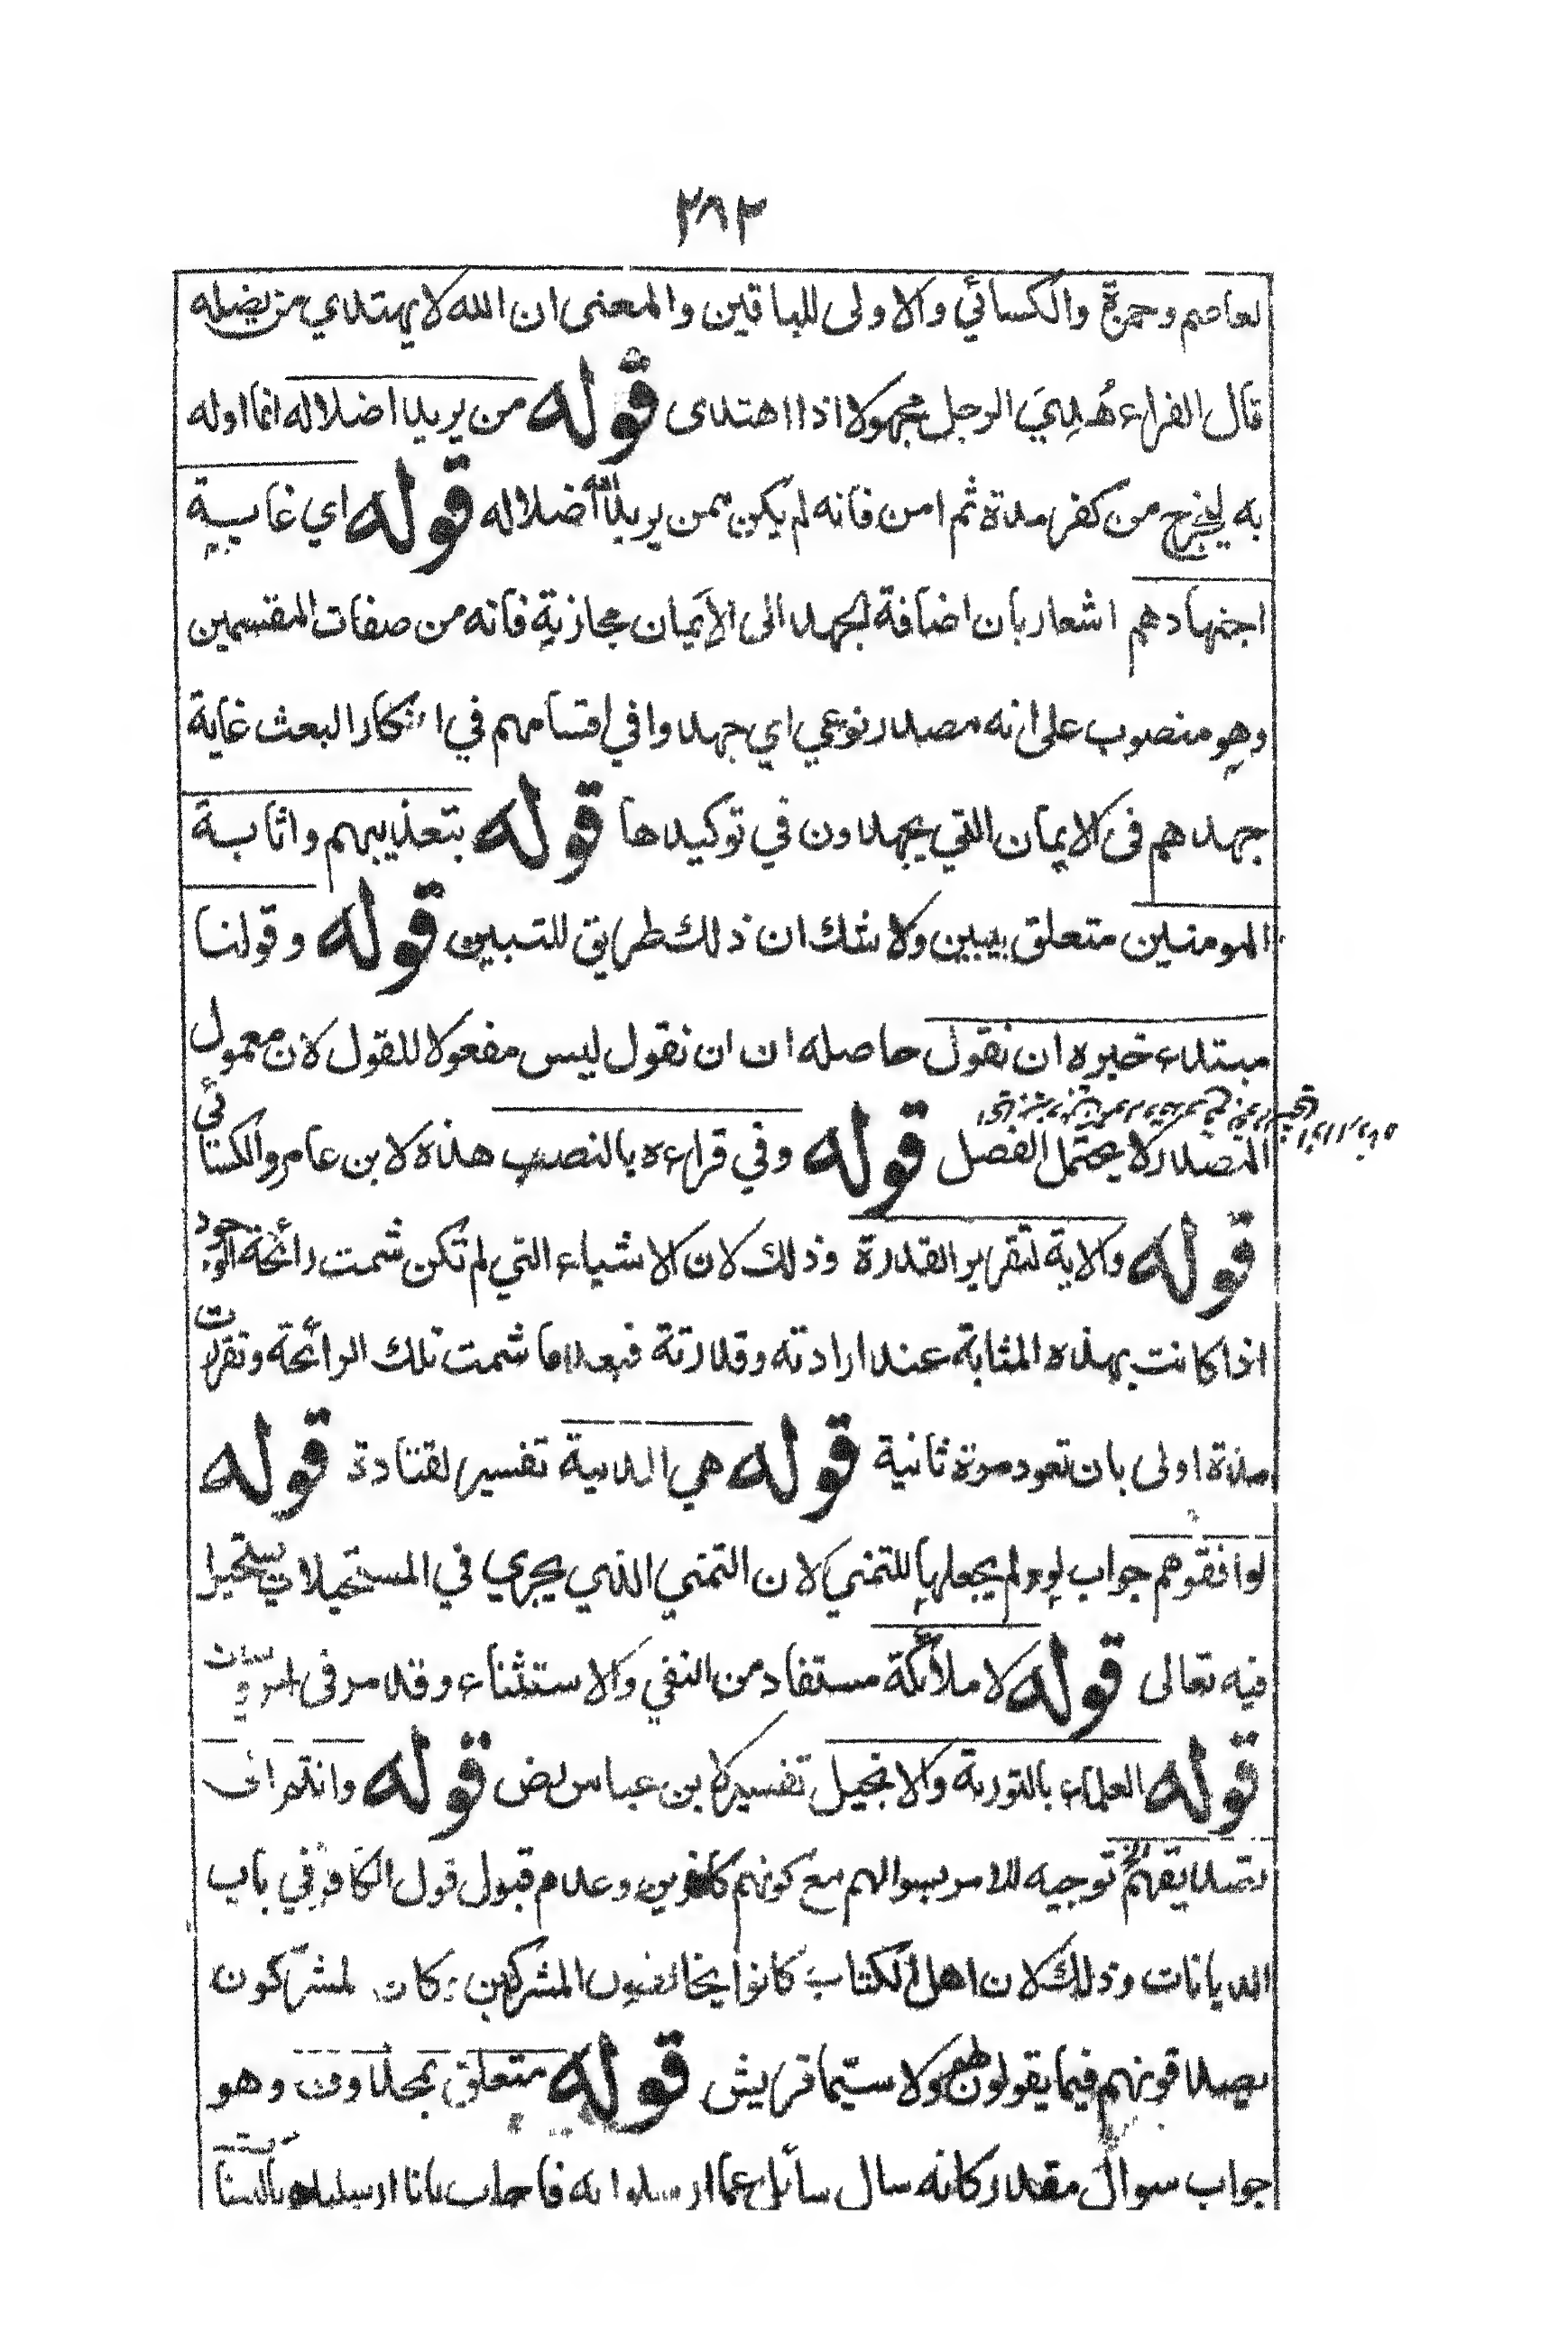 ٢٨٢
لعاصم وحمزة والكسائي والاولى للباقين والمعنى ان الله لا يهتدي من يضله
قال الفراء هُدِيَ الرجل مجهولا اذا اهتدى قوله من يريد اضلاله انما اوله
به ليخرج من كفر مدة ثم امن فانه لم يكن ممن يريد الله اضلاله قوله اي غاية
اجتهادهم اشعار بان اضافة الجهد الى الأيمان مجازية فانه من صفات المقسمين
وهو منصوب على انه مصدر نوعي اي جهدوا في اقسامهم في انكار البعث غاية
جهدهم فى الايمان التي يجهدون في توكيدها قوله بتعذيبهم واثابة
المومنين متعلق بيبين ولا شك ان ذلك طريق للتبيين قوله وقولنا
مبتداء خبره ان نقول حاصله ان ان نقول ليس مفعولا للقول لان معمول
المصدر لا يحتمل الفصل قوله وفي قراءه بالنصب هذه لابن عامر والكسائي
قوله والاية لتقرير القدرة وذلك لان الاشياء التي لم تكن شمت رائحة الوجود
اذا كانت بهذه المثابة عند ارادته وقدرتة فبعد ما شمت تلك الرائحة وتقررت
مدة اولى بان تعود مرة ثانية قوله هي المدينة تفسير لقتادة قوله
لوافقوهم جواب لو ولم يجعلها للتمني لان التمني الذي يجري في المستحيلات يستحيل
فيه تعالى قوله لا ملائكة مستفاد من النفي والاستثناء وقد مر فى
قوله العلماء بالتورىة والانجيل تفسير لابن عباس رض قوله وانتم الى
تصديقهم توجيه للامر بسوالهم مع كونهم كافرين وعدم قبول قول الكافر في باب
الديانات وذلك لان اهل الكتاب كانوا يخالفون المشركين وكان المشركون
يصدقونهم فيما يقولون ولا سيّما قريش قوله متعلق بمحذوف وهو
جواب سوال مقدر كانه سال سائل عما ارسلوا به فاجاب بانا ارسلناهم بالبينات